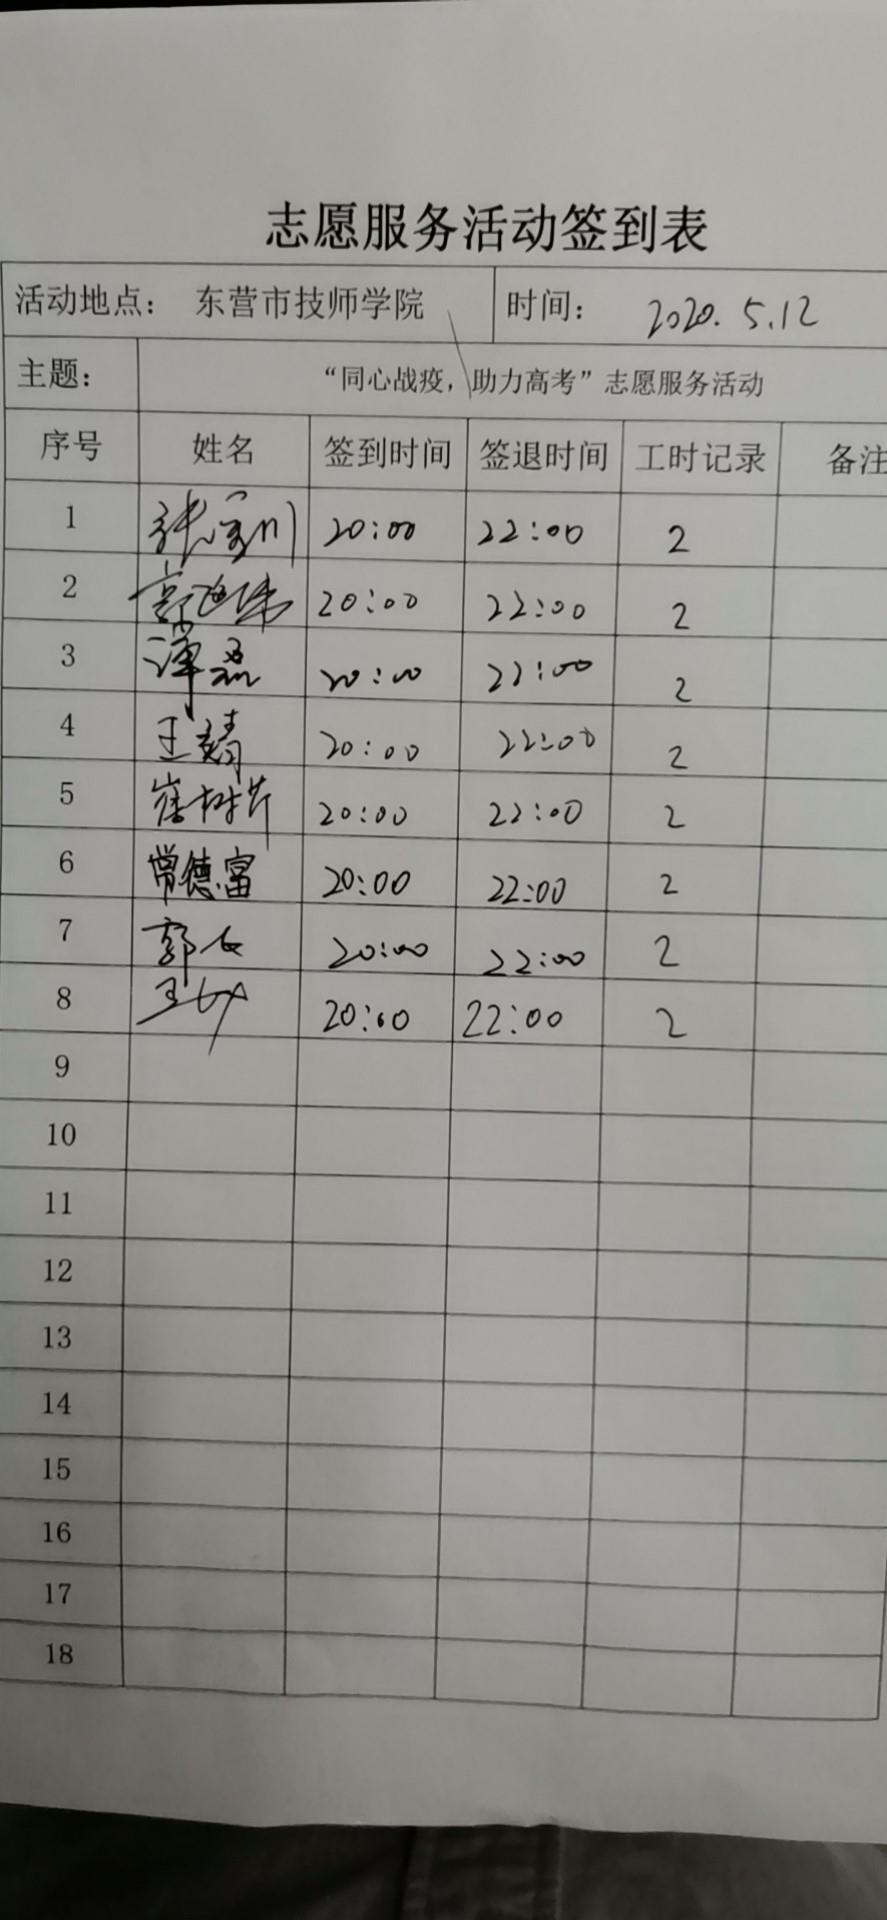 志愿服务活动签到表
活动地点： 东营市技师学院 时间： 2020.5.12
主题： “同心战疫，助力高考”志愿服务活动
序号 姓名 签到时间 签退时间 工时记录 备注
1 20:00 22:00 2
2 20:00 22:00 2
3 谭磊 20:00 22:00 2
4 王靖 20:00 22:00 2
5 崔树芹 20:00 22:00 2
6 常德富 20:00 22:00 2
7 20:00 22:00 2
8 20:00 22:00 2
9
10
11
12
13
14
15
16
17
18